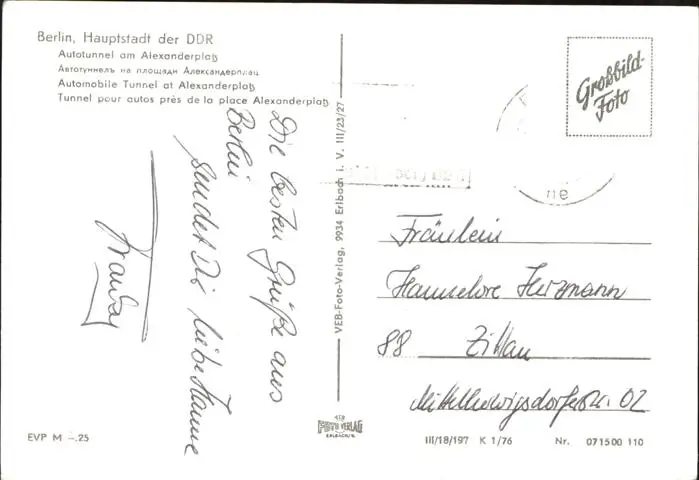 Berlin, Hauptstadt der DDR
Autotunnel am Alexanderplatz
Автотуннель на площади Александерплац
Automobile Tunnel at Alexanderplatz
Tunnel pour autos près de la place Alexanderplatz
Die besten Grüße aus
Berlin
sendet Dir liebe Hanne
VEB-Foto-Verlag, 9934 Erlbach i. V. III/23/27
Großbild-
Foto
Fräulein
Hannelore Herzmann
88 Zittau
Mittelherwigsdorferstr. 02
EVP M –.25
FOTO VERLAG
ERLBACH/V.
III/18/197 K 1/76 Nr. 071500 110